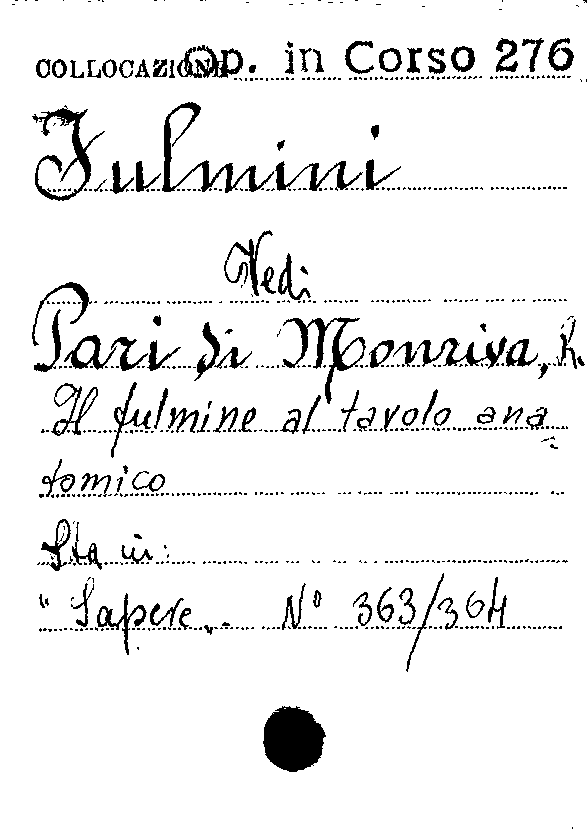 COLLOCAZIONE Op. in Corso 276
Fulmini
Vedi
Pari di Monriva, R.
Il fulmine al tavolo ana=
tomico
Sta in:
"Sapere„. N° 363/364